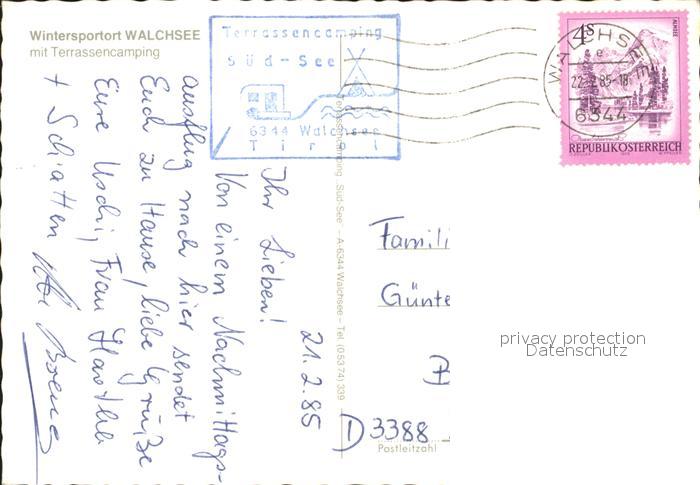 Wintersportort WALCHSEE
mit Terrassencamping
Terrassencamping
Süd-See
6344 Walchsee
Tirol
WALCHSEE
22.-2.85-18
e
6344
4S
ALMSEE
REPUBLIK ÖSTERREICH
Terrassencamping Süd-See – A-6344 Walchsee – Tel. (05374) 339
21.2.85
Ihr Lieben!
Von einem Nachmittags-
ausflug nach hier sendet
Euch zu Hause, liebe Grüße
Eure Uschi, Frau
+ Schatten
Famili
Günte
D 3388
Postleitzahl
privacy protection
Datenschutz